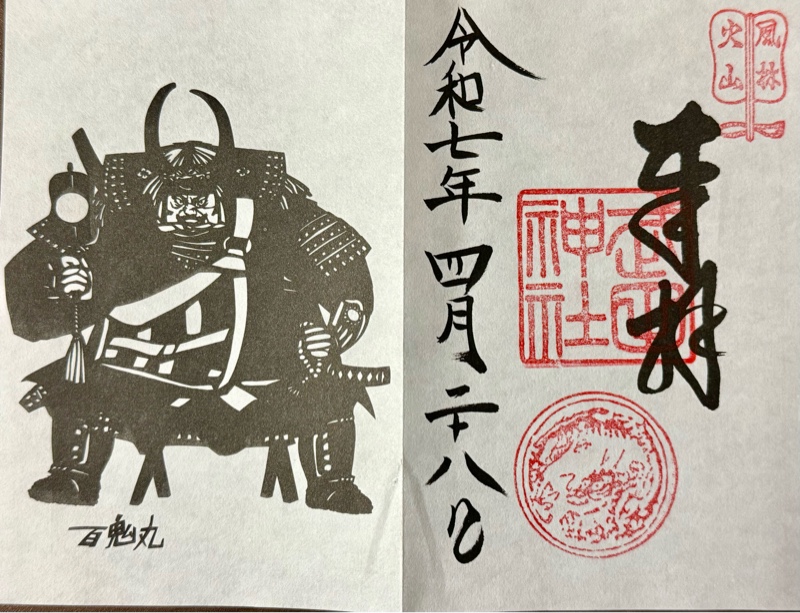 風林
火山
奉拝
武田
神社
令和七年 四月二十八日
百鬼丸